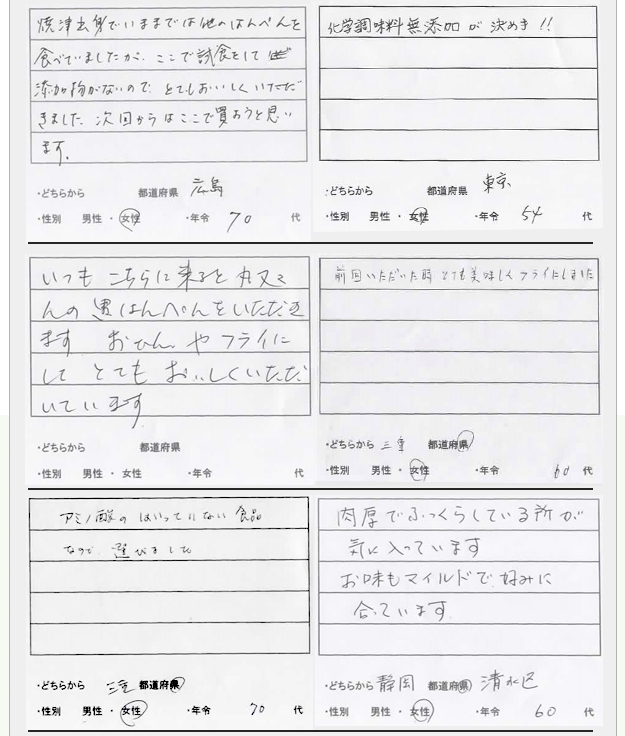 焼津出身でいままでは他のはんぺんを
食べていましたが、ここで試食をして
添加物がないので とてもおいしくいただ
きました 次回からはここで買おうと思い
ます。
・どちらから 都道府県 広島
・性別 男性・女性 ・年令 70 代
化学調味料無添加が決めき!!
・どちらから 都道府県 東京
・性別 男性・女性 ・年令 54 代
いつも こちらに来ると 丸又さ
んの 黒はんぺんをいただき
ます おでん や フライに
して とても おいしくいただ
いています
・どちらから 都道府県
・性別 男性・女性 ・年令 代
前回いただいた時 とても美味しくフライにしました
・どちらから 三重 都道府県
・性別 男性・女性 ・年令 60 代
アミノ酸の はいっていない 食品
なので、選びました
・どちらから 三重 都道府県
・性別 男性・女性 ・年令 70 代
肉厚でふっくらしている所が
気に入っています
お味もマイルドで好みに
合っています
・どちらから 静岡 都道府県 清水区
・性別 男性・女性 ・年令 60 代